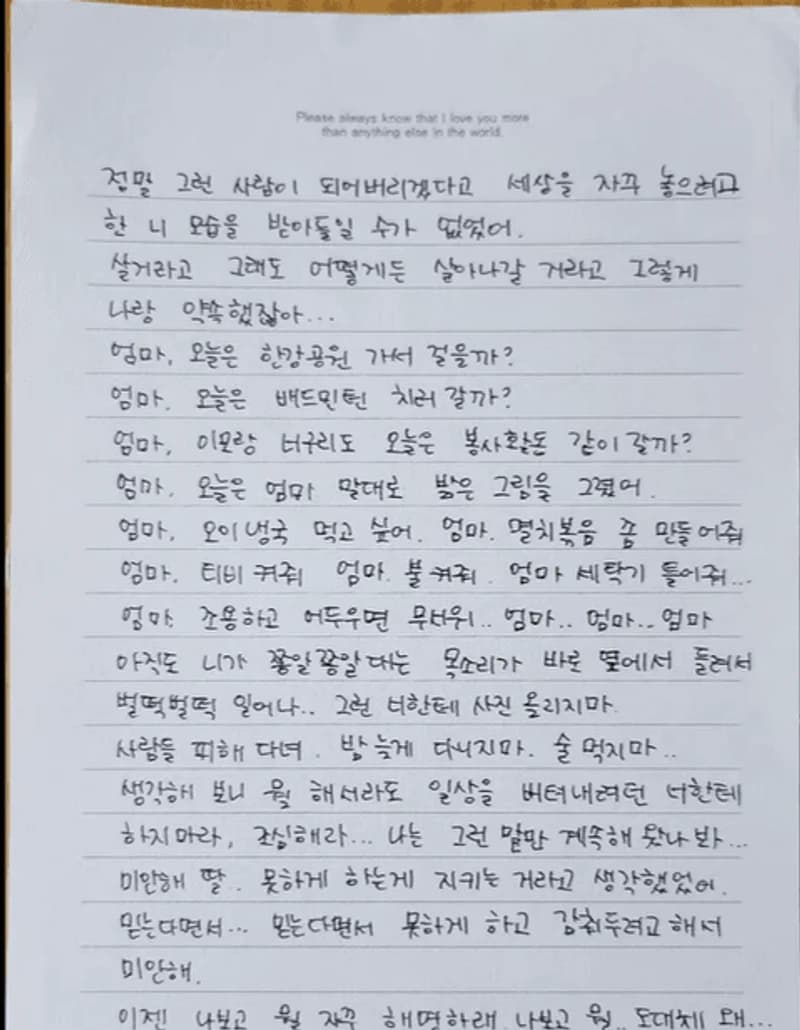 Please always know that I love you more
than anything else in the world.
정말 그런 사람이 되어버리겠다고 세상을 자꾸 놓으려고
한 니 모습을 받아들일 수가 없었어.
살거라고 그래도 어떻게든 살아나갈 거라고 그렇게
나랑 약속했잖아...
엄마, 오늘은 한강공원 가서 걸을까?
엄마. 오늘은 배드민턴 치러갈까?
엄마, 이모랑 너구리도 오늘은 봉사활동 같이갈까?
엄마, 오늘은 엄마 말대로 밝은 그림을 그렸어.
엄마, 오이냉국 먹고 싶어. 엄마. 멸치볶음 좀 만들어줘
엄마. 티비 켜줘 엄마. 불켜줘. 엄마 세탁기 틀어줘...
엄마. 조용하고 어두우면 무서워.. 엄마.. 엄마.. 엄마
아직도 니가 쫑알쫑알대는 목소리가 바로 옆에서 들려서
벌떡벌떡 일어나.. 그런 너한테 사진 올리지마.
사람들 피해 다녀. 밤늦게 다니지마. 술 먹지마..
생각해 보니 뭘 해서라도 일상을 버텨내려던 너한테
하지마라, 조심해라... 나는 그런 말만 계속해 왔나봐...
미안해 딸. 못하게 하는게 지키는 거라고 생각했었어.
믿는다면서... 믿는다면서 못하게 하고 감춰두려고해서
미안해.
이젠 나보고 뭘 자꾸 해명하래. 나보고 뭘.. 도대체 왜...